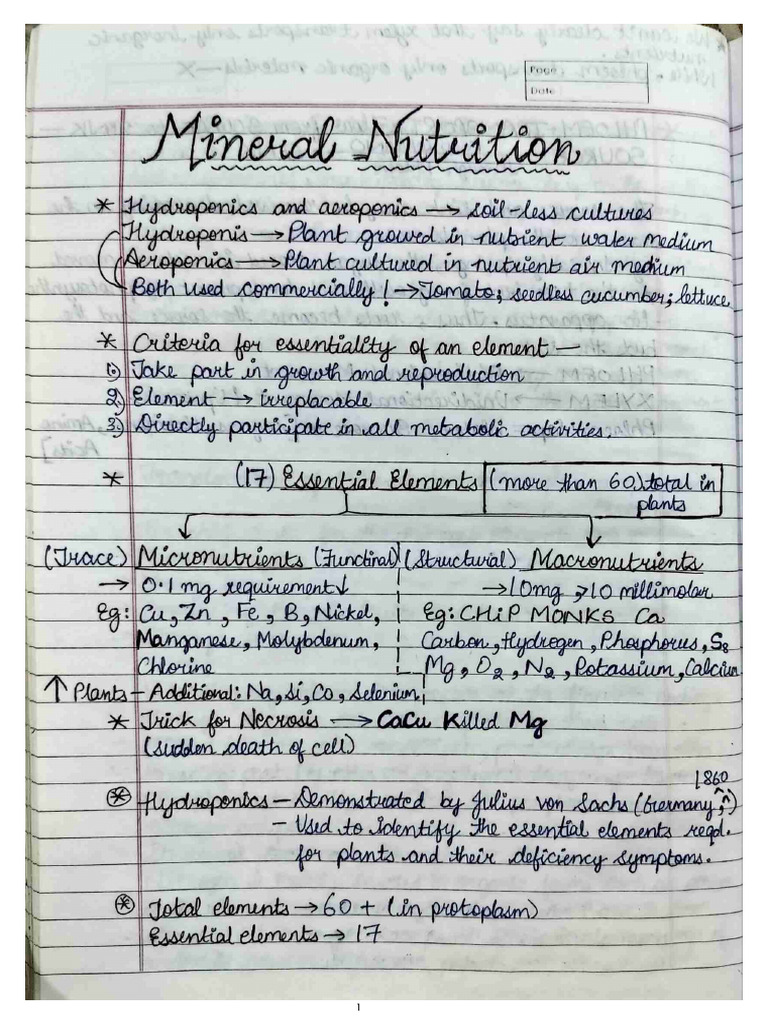 Page:
Date:
Mineral Nutrition
* Hydroponics and aeroponics → soil-less cultures
Hydroponis → Plant growed in nutrient water medium
Aeroponics → Plant cultured in nutrient air medium
Both used commercially! → Tomato; seedless cucumber; lettuce
* Criteria for essentiality of an element —
1) Take part in growth and reproduction
2.) Element → irreplacable
3.) Directly participate in all metabolic activities.
* (17) Essential Elements (more than 60) total in
plants
(Trace) Micronutrients (Functinal) (Structural) Macronutrients
→ 0.1 mg requirement↓ → 10mg, ⩾10 millimolar
Eg: Cu, Zn, Fe, B, Nickel, Eg: CHiP MONKS Ca
Manganese, Molybdenum, Carbon, Hydrogen, Phosphorus, S8
Chlorine Mg, O2, N2, Potassium, Calcium
↑ Plants — Additional: Na, Si, Co, Selenium
* Trick for Necrosis → CaCu Killed Mg
(sudden death of cell)
1860
* Hydroponics — Demonstrated by Julius von Sachs (Germany)
- Used to identify the essential elements reqd.
for plants and their deficiency symptoms.
* Total elements → 60 + (in protoplasm)
Essential elements → 17
1